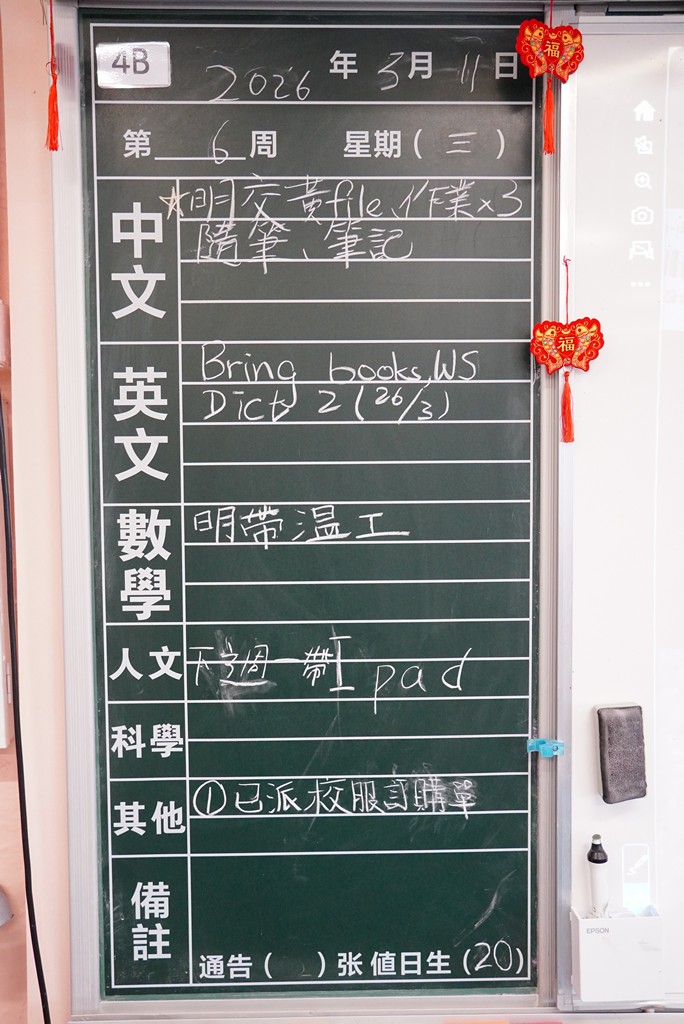 4B
2026 年 3月 11日
第 6 周 星期(三)
中文
☆明交黃file、作業×3
隨筆、筆記
英文
Bring books, WS
Dict 2 (26/3)
數學
明帶温工
人文
下周一帶Ipad
科學
其他
①已派校服訂購單
備註
通告( )张 值日生(20)
福
福
EPSON